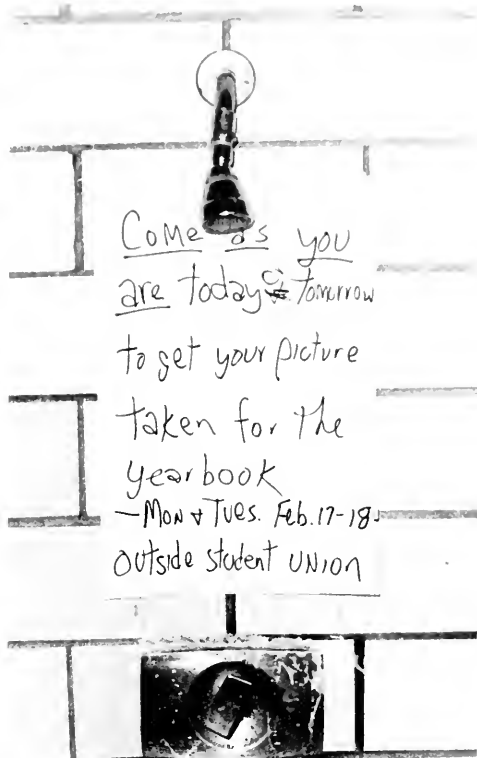 Come as you
are today or tomorrow
to get your picture
taken for the
yearbook
—Mon & Tues. Feb. 17-18
outside student UNION